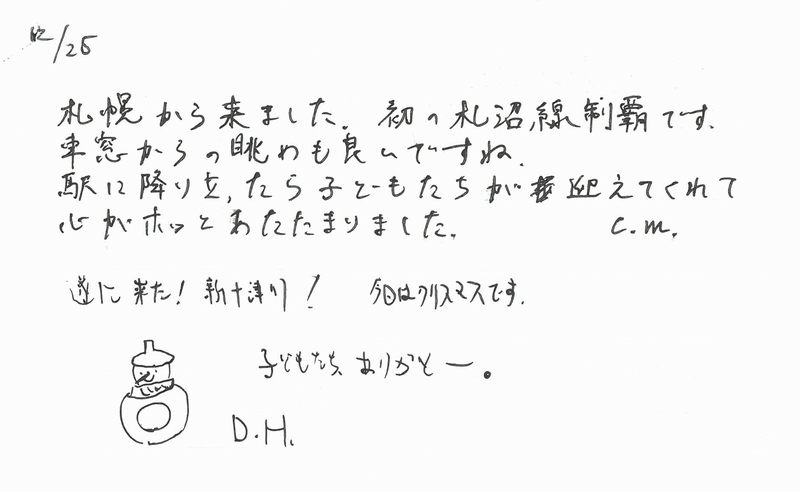 12/25
札幌から来ました。初の札沼線制覇です。
車窓からの眺めも良いですね。
駅に降り立ったら子どもたちが迎えてくれて
心がホッとあたたまりました。 C.M.
遂に来た！新十津川！ 今日はクリスマスです。
子どもたち、ありがとー。
D.H.